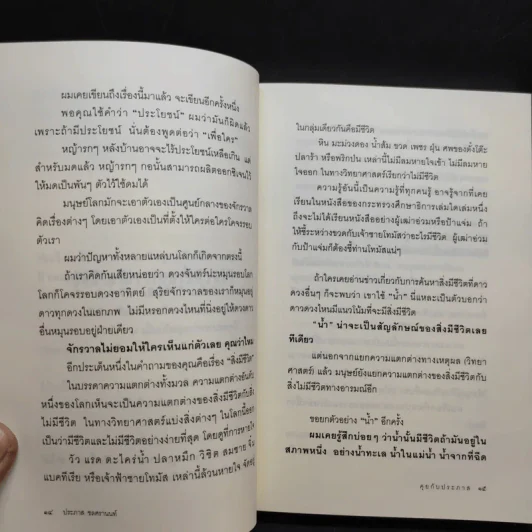 ผมเคยเขียนถึงเรื่องนี้มาแล้ว จะเขียนอีกครั้งหนึ่ง
พอคุณใช้คำว่า “ประโยชน์” ผมว่ามันก็ผิดแล้ว
เพราะถ้ามีประโยชน์ นั่นต้องพูดต่อว่า “เพื่อใคร”
หญ้ารกๆ หลังบ้านอาจจะไร้ประโยชน์เหลือเกิน แต่
สำหรับมดแล้ว หญ้ารกๆ กอนั้นสามารถผลิตออกซิเจนให้
ให้มดเป็นพันๆ ตัวไว้ใช้ดมได้
มนุษย์โลกมักจะเอาตัวเองเป็นศูนย์กลางของจักรวาล
คิดเรื่องต่างๆ โดยเอาตัวเองเป็นที่ตั้งให้ใครต่อใครโคจรรอบ
ตัวเรา
ผมว่าปัญหาทั้งหลายแหล่บนโลกก็เกิดจากตรงนี้
ถ้าเราคิดกันเสียหน่อยว่า ดวงจันทร์น่ะหมุนรอบโลก
โลกก็โคจรรอบดวงอาทิตย์ สุริยจักรวาลของเราก็หมุนอยู่
ดาวทุกดวงในเอกภพ ไม่มีหรอกดวงไหนที่นิ่งอยู่ให้ดวงดาว
อื่นหมุนรอบอยู่ฝ่ายเดียว
จักรวาลไม่ยอมให้ใครเห็นแก่ตัวเลย คุณว่าไหม
อีกประเด็นหนึ่งในคำถามของคุณคือเรื่อง “สิ่งมีชีวิต”
ในบรรดาความแตกต่างทั้งมวล ความแตกต่างอันหนึ่ง
หนึ่งของโลกเห็นจะเป็นความแตกต่างของสิ่งมีชีวิตกับสิ่ง
ไม่มีชีวิต ในทางวิทยาศาสตร์แบ่งสิ่งต่างๆ ในโลกนี้ออก
เป็นว่ามีชีวิตและไม่มีชีวิตอย่างง่ายที่สุด โดยดูที่การหายใจ
วัว แรด ตะไคร่น้ำ ปลาหมึก วิชิต สมชาย
แบคทีเรีย หรือเจ้าฟ้าชายโทมัส เหล่านี้ล้วนหายใจ จัดอยู่
๑๔ ประภาส ชลศรานนท์
ในกลุ่มเดียวกันคือมีชีวิต
หิน มะม่วงดอง น้ำส้ม ขวด เพชร ฝุ่น ศพของตั๋งโต๊ะ
ปลาร้า หรือพริกป่น เหล่านี้ไม่มีลมหายใจเข้า ไม่มีลมหาย
ใจออก ในทางวิทยาศาสตร์เรียกว่าไม่มีชีวิต
ความรู้อันนี้เป็นความรู้ที่ทุกคนรู้ อาจรู้จากที่เคย
เรียนในหนังสือของกระทรวงศึกษาธิการเล่มใดเล่มหนึ่ง
ถึงจะไม่ได้เรียนหนังสืออย่างผู้เฒ่าอ่วมหรือป้าแจ่ม ถ้า
ให้ชี้ระหว่างขวดกับเจ้าชายโทมัสว่าอะไรมีชีวิต ผู้เฒ่าอ่วม
กับป้าแจ่มก็ต้องชี้ท่านโทมัสแน่ๆ
ถ้าใครเคยอ่านข่าวเกี่ยวกับการค้นหาสิ่งมีชีวิตที่ดาว
ดวงอื่นๆ ก็จะพบว่า เขาใช้ “น้ำ” นี่แหละเป็นตัวบอกว่า
ดาวดวงไหนมีแนวโน้มที่จะมีสิ่งมีชีวิต
“น้ำ” น่าจะเป็นสัญลักษณ์ของสิ่งมีชีวิตเลย
ทีเดียว
แต่นอกจากแยกความแตกต่างทางเหตุผล (วิทยา
ศาสตร์) แล้ว มนุษย์ยังแยกความแตกต่างของสิ่งมีชีวิตกับ
สิ่งไม่มีชีวิตทางอารมณ์อีก
ขอยกตัวอย่าง “น้ำ” อีกครั้ง
ผมเคยรู้สึกบ่อยๆ ว่าน้ำนั้นมีชีวิตถ้ามันอยู่ใน
สภาพหนึ่ง อย่างน้ำทะเล น้ำในแม่น้ำ น้ำจากที่ฉีด
คุยกับประภาส ๑๕